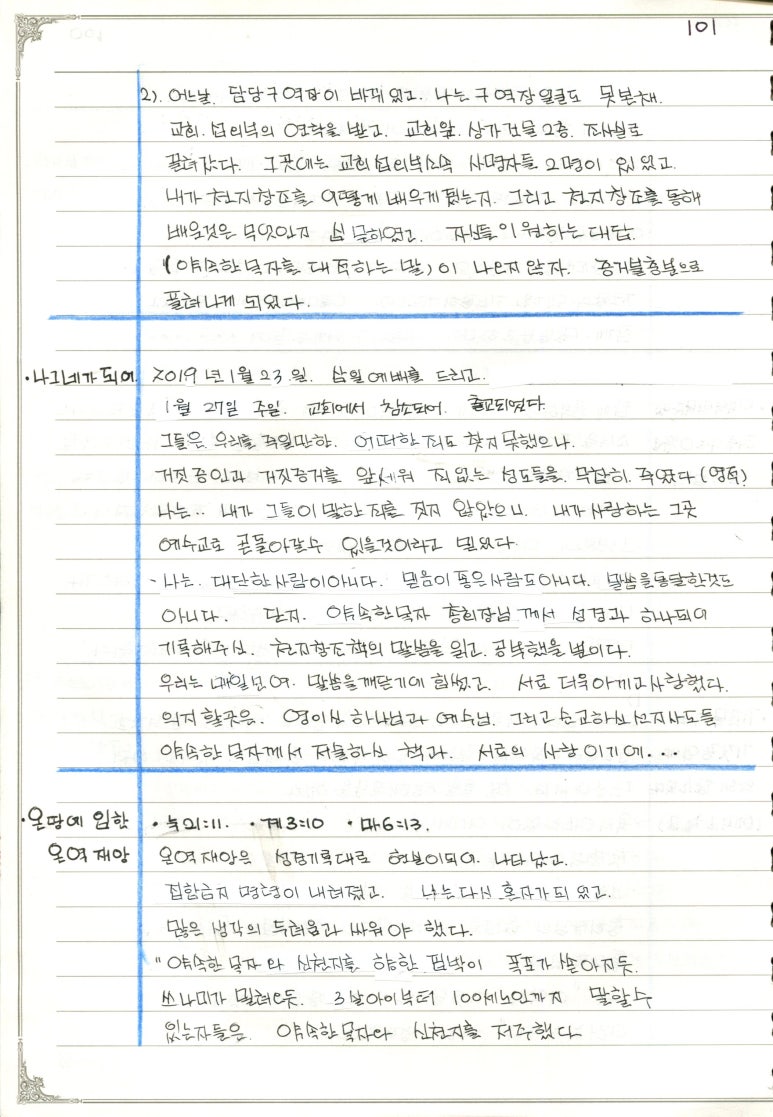 101
2). 어느날. 담당구역장이 바뀌었고. 나는 구역장얼굴도 못본채.
교회. 섭리부의 연락을 받고. 교회앞. 상가건물 2층. 조사실로
끌려갔다. 그곳에는 교회섭리부소속 사명자들 2명이 있었고.
내가 천지창조를 어떻게 배우게 됐는지. 그리고 천지창조를 통해
배운것은 무엇인지 심문하였고. 자신들이 원하는 대답.
(약속한 목자를 대적하는 말)이 나오지 않자. 증거불충분으로
풀려나게 되었다.
·나그네가 되어. 2019년 1월 23.일. 삼일예배를 드리고.
1월 27일 주일. 교회에서 참소되어. 출교되었다.
그들은 우리를 죽일만한. 어떠한 죄도 찾지 못했으나.
거짓증인과 거짓증거를 앞세워 죄없는 성도들을. 무참히. 죽였다 (영적)
나는.. 내가 그들이 말한 죄를 짓지 않았으니. 내가 사랑하는 그곳
예수교로 곧돌아갈수 있을것이라고 믿었다.
- 나는. 대단한 사람이아니다. 믿음이 좋은사람도아니다. 말씀을통달한것도
아니다. 단지. 약속한목자 총회장님께서 성경과 하나되어
기록해주신. 천지창조책의 말씀을 읽고. 공부했을 뿐이다.
우리는 매일모여. 말씀을깨닫기에 힘썼고. 서로 더욱아끼고사랑했다.
의지할곳은. 영이신 하나님과 예수님. 그리고 순교하신선지사도들
약속한 목자께서 저술하신 책과. 서로의 사랑이기에...
·온땅에 임한 · 눅21:11. · 계3:10 · 마6:13.
온역재앙 온역재앙은 성경기록대로 현실이되어 나타났고.
집합금지 명령이 내려졌고. 나는다시 혼자가 되었고.
많은 생각의 두려움과 싸워야 했다.
"약속한 목자와 신천지를 향한 핍박이 폭포가 쏟아지듯.
쓰나미가 밀려오듯. 3살아이부터 100세노인까지 말할수
있는자들은. 약속한목자와 신천지를 저주했다